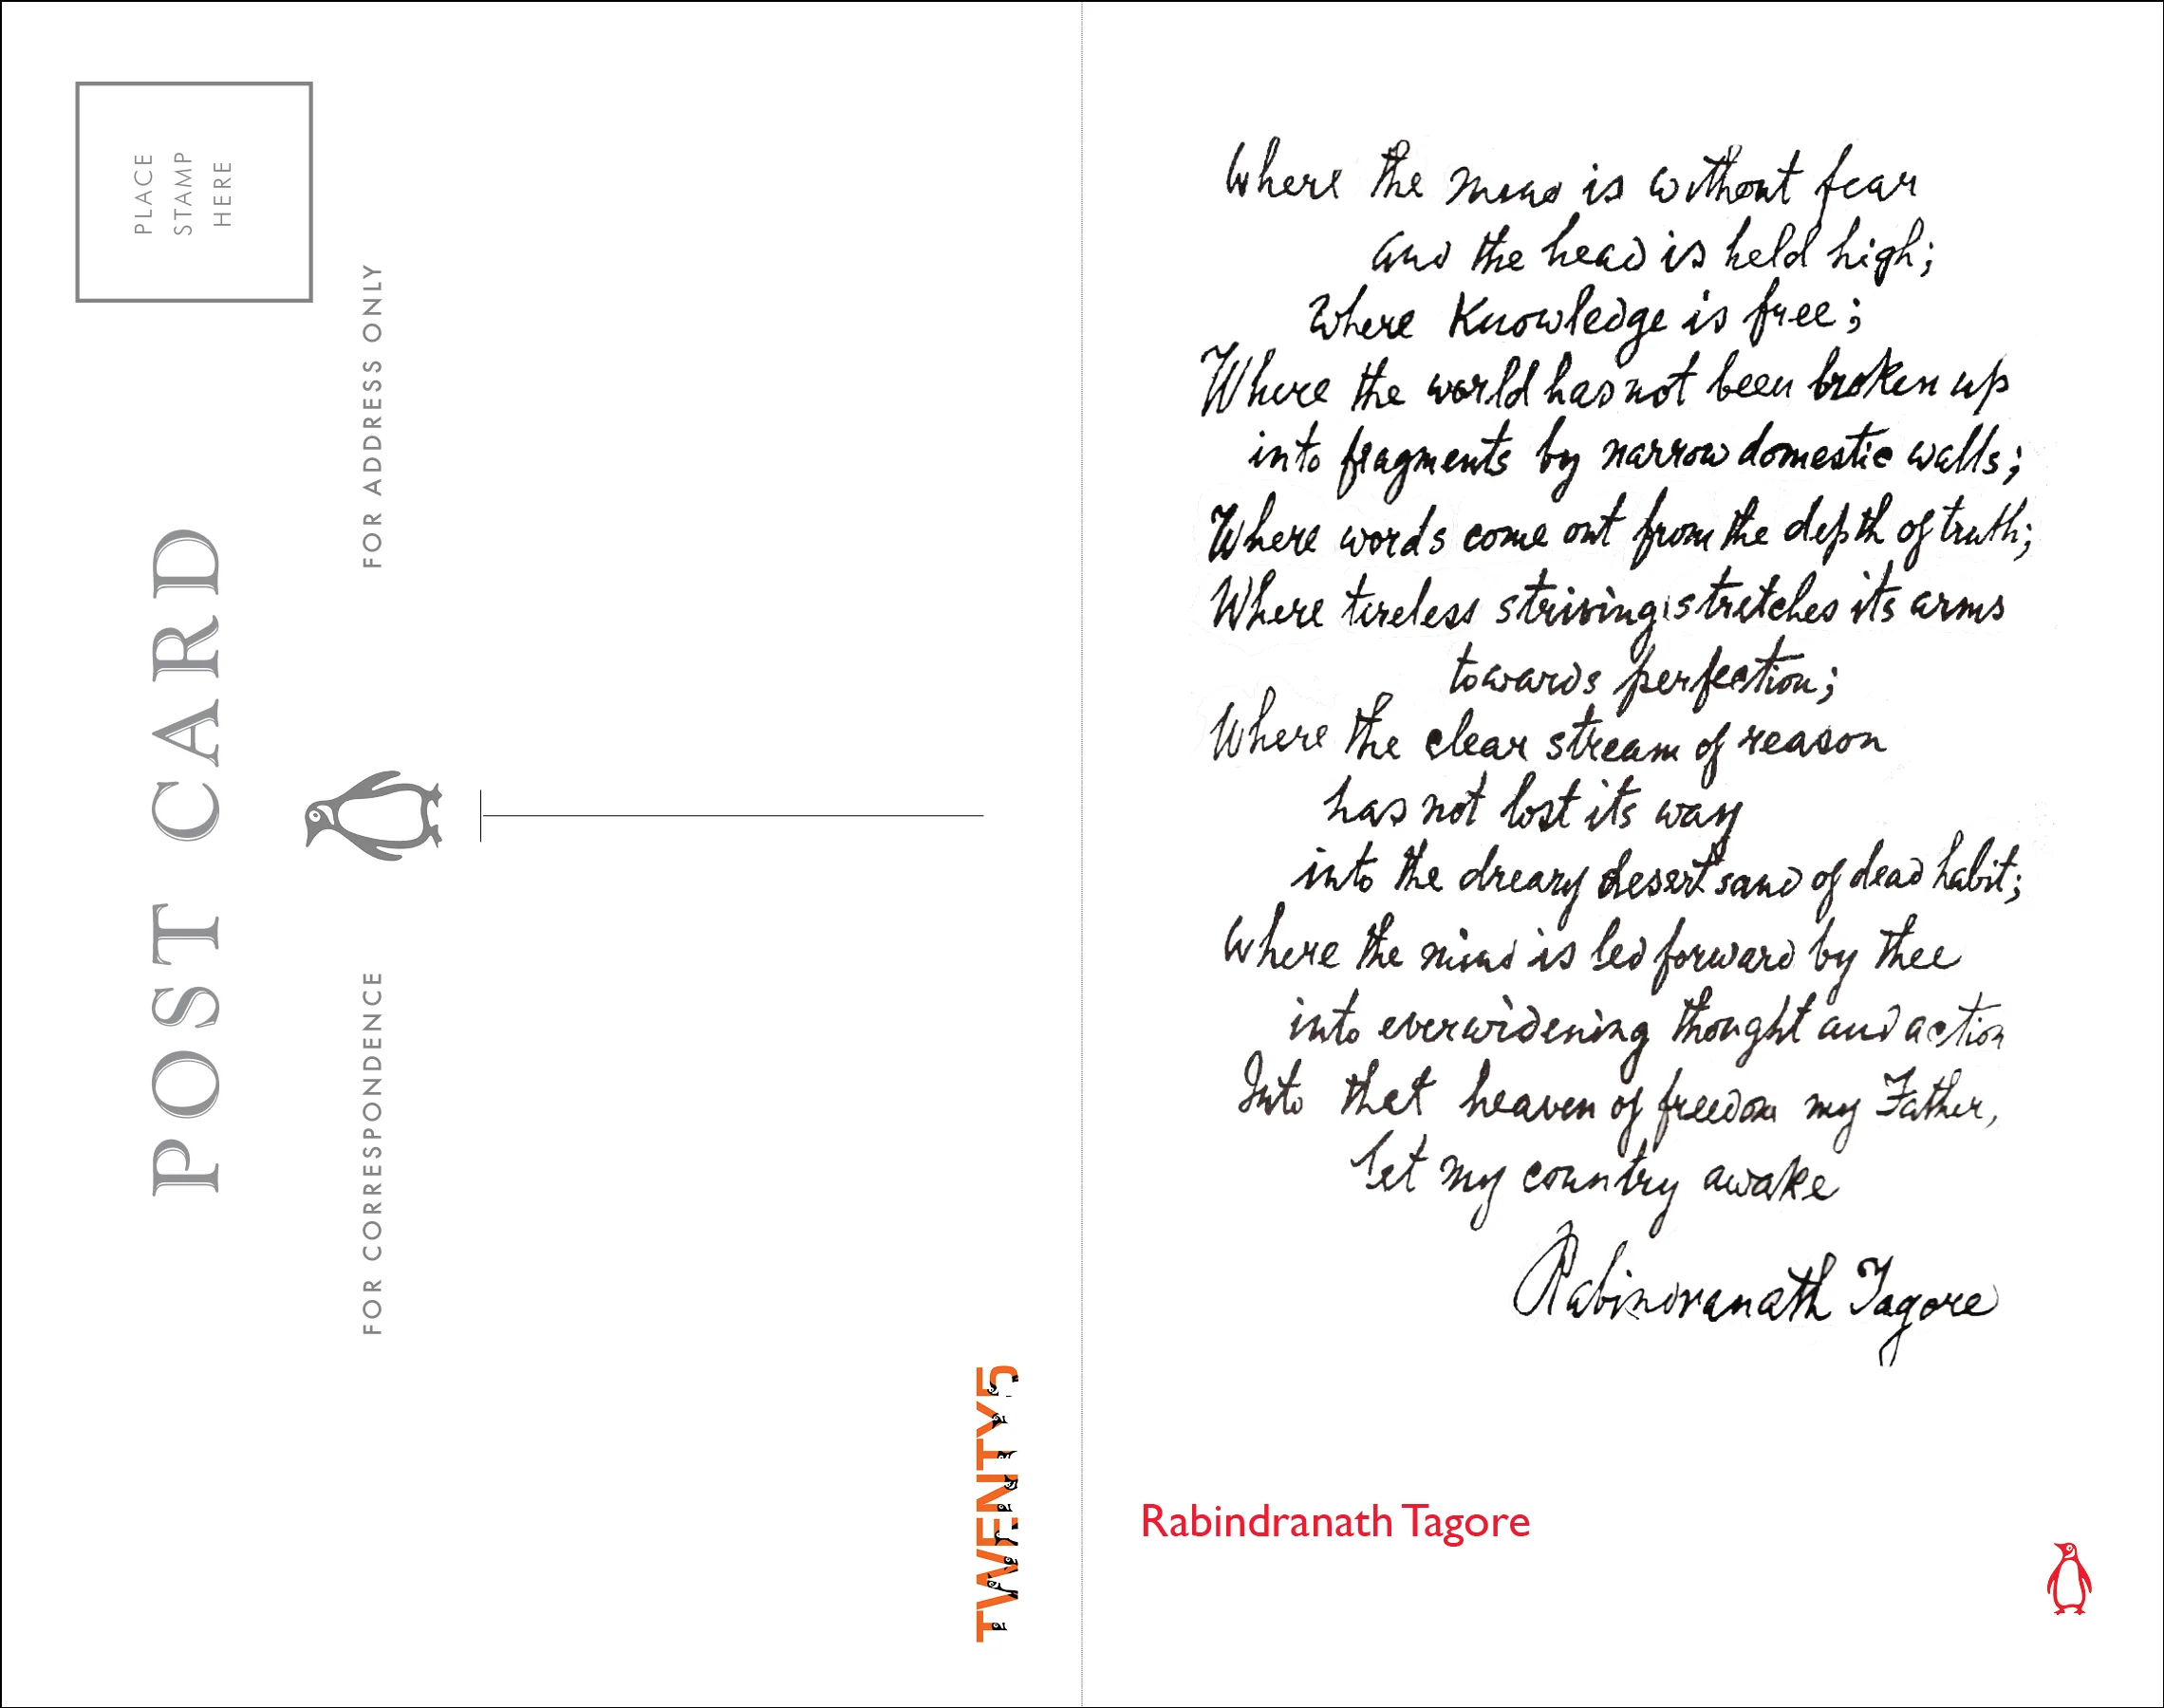 PLACE
STAMP
HERE
POST CARD
FOR ADDRESS ONLY
FOR CORRESPONDENCE
TWENTY5
Where the mind is without fear
and the head is held high;
Where Knowledge is free;
Where the world has not been broken up
into fragments by narrow domestic walls;
Where words come out from the depth of truth;
Where tireless striving stretches its arms
towards perfection;
Where the clear stream of reason
has not lost its way
into the dreary desert sand of dead habit;
Where the mind is led forward by thee
into everwidening thought and action
Into that heaven of freedom my Father,
let my country awake
Rabindranath Tagore
Rabindranath Tagore